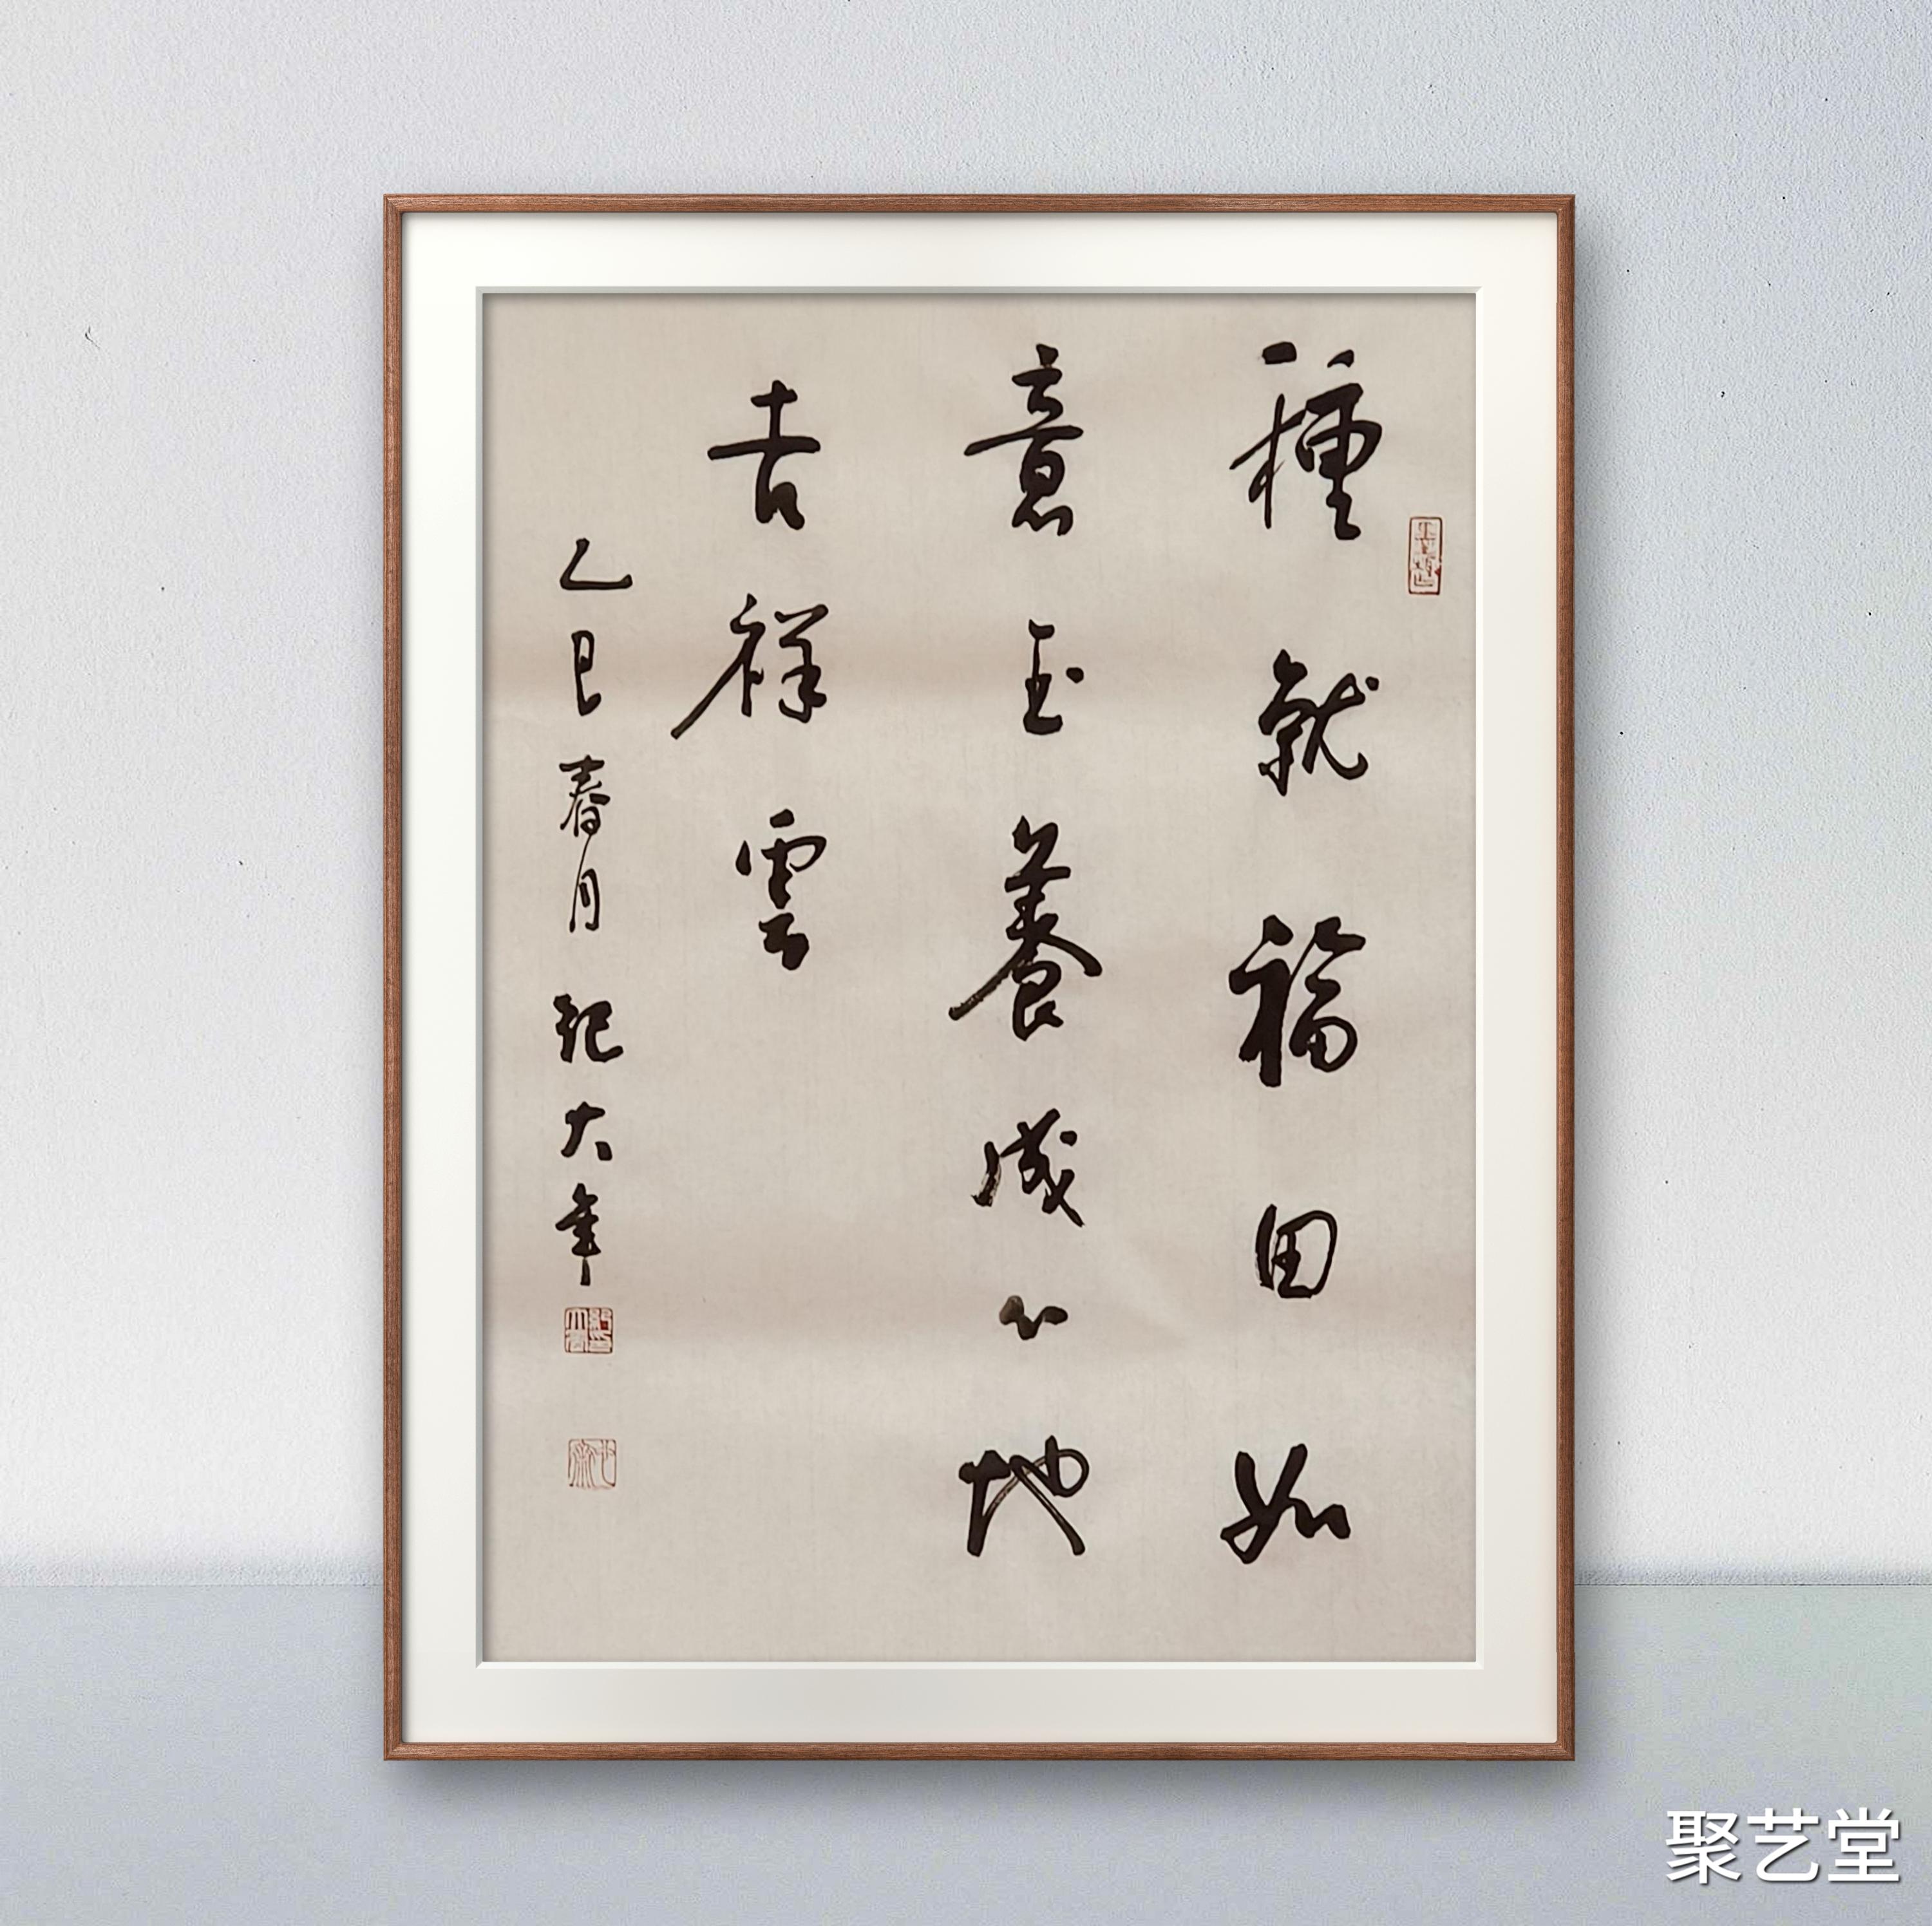 種就福田如
意玉養成心地
吉祥雲
乙巳春月 紀大年
聚艺堂